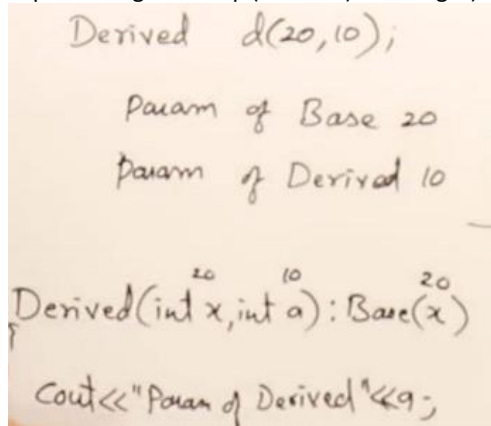 Derived d(20,10);
Param of Base 20
Param of Derived 10
20 10 20
Derived(int x, int a) : Base(x)
{
Cout<<"Param of Derived"<<a;